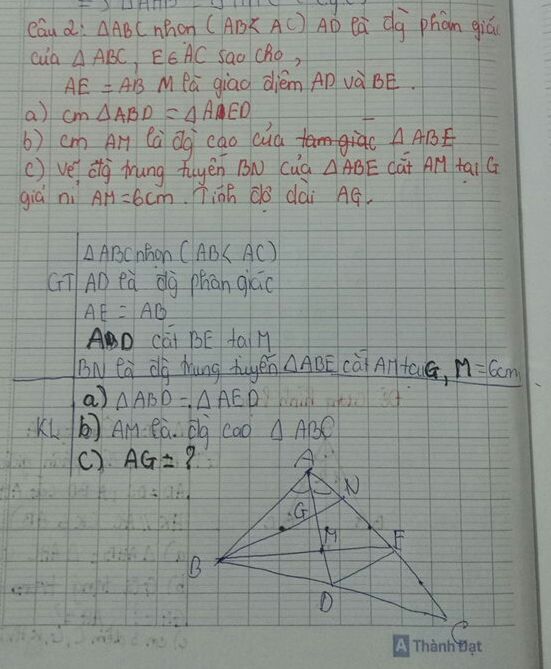 Câu 2: ΔABC nhọn (AB < AC) AD là đg phân giác
của ΔABC, E∈AC sao cho,
AE = AB M là giao điểm AD và BE.
a) cm ΔABD = ΔAED
b) cm AM là đg cao của tam giác ΔABE
c) vẽ đg trung tuyến BN của ΔABE cắt AM tại G
giả AM=6cm. Tính độ dài AG.
ΔABC nhọn (AB < AC)
GT AD là đg phân giác
AE = AB
AD cắt BE tại M
BN là đg trung tuyến ΔABE cắt AM tại G, M = 6cm
a) ΔABD = ΔAED
KL b) AM là đg cao ΔABC
c) AG = ?
A
N
G
M
E
B
D
C
A Thành Đạt